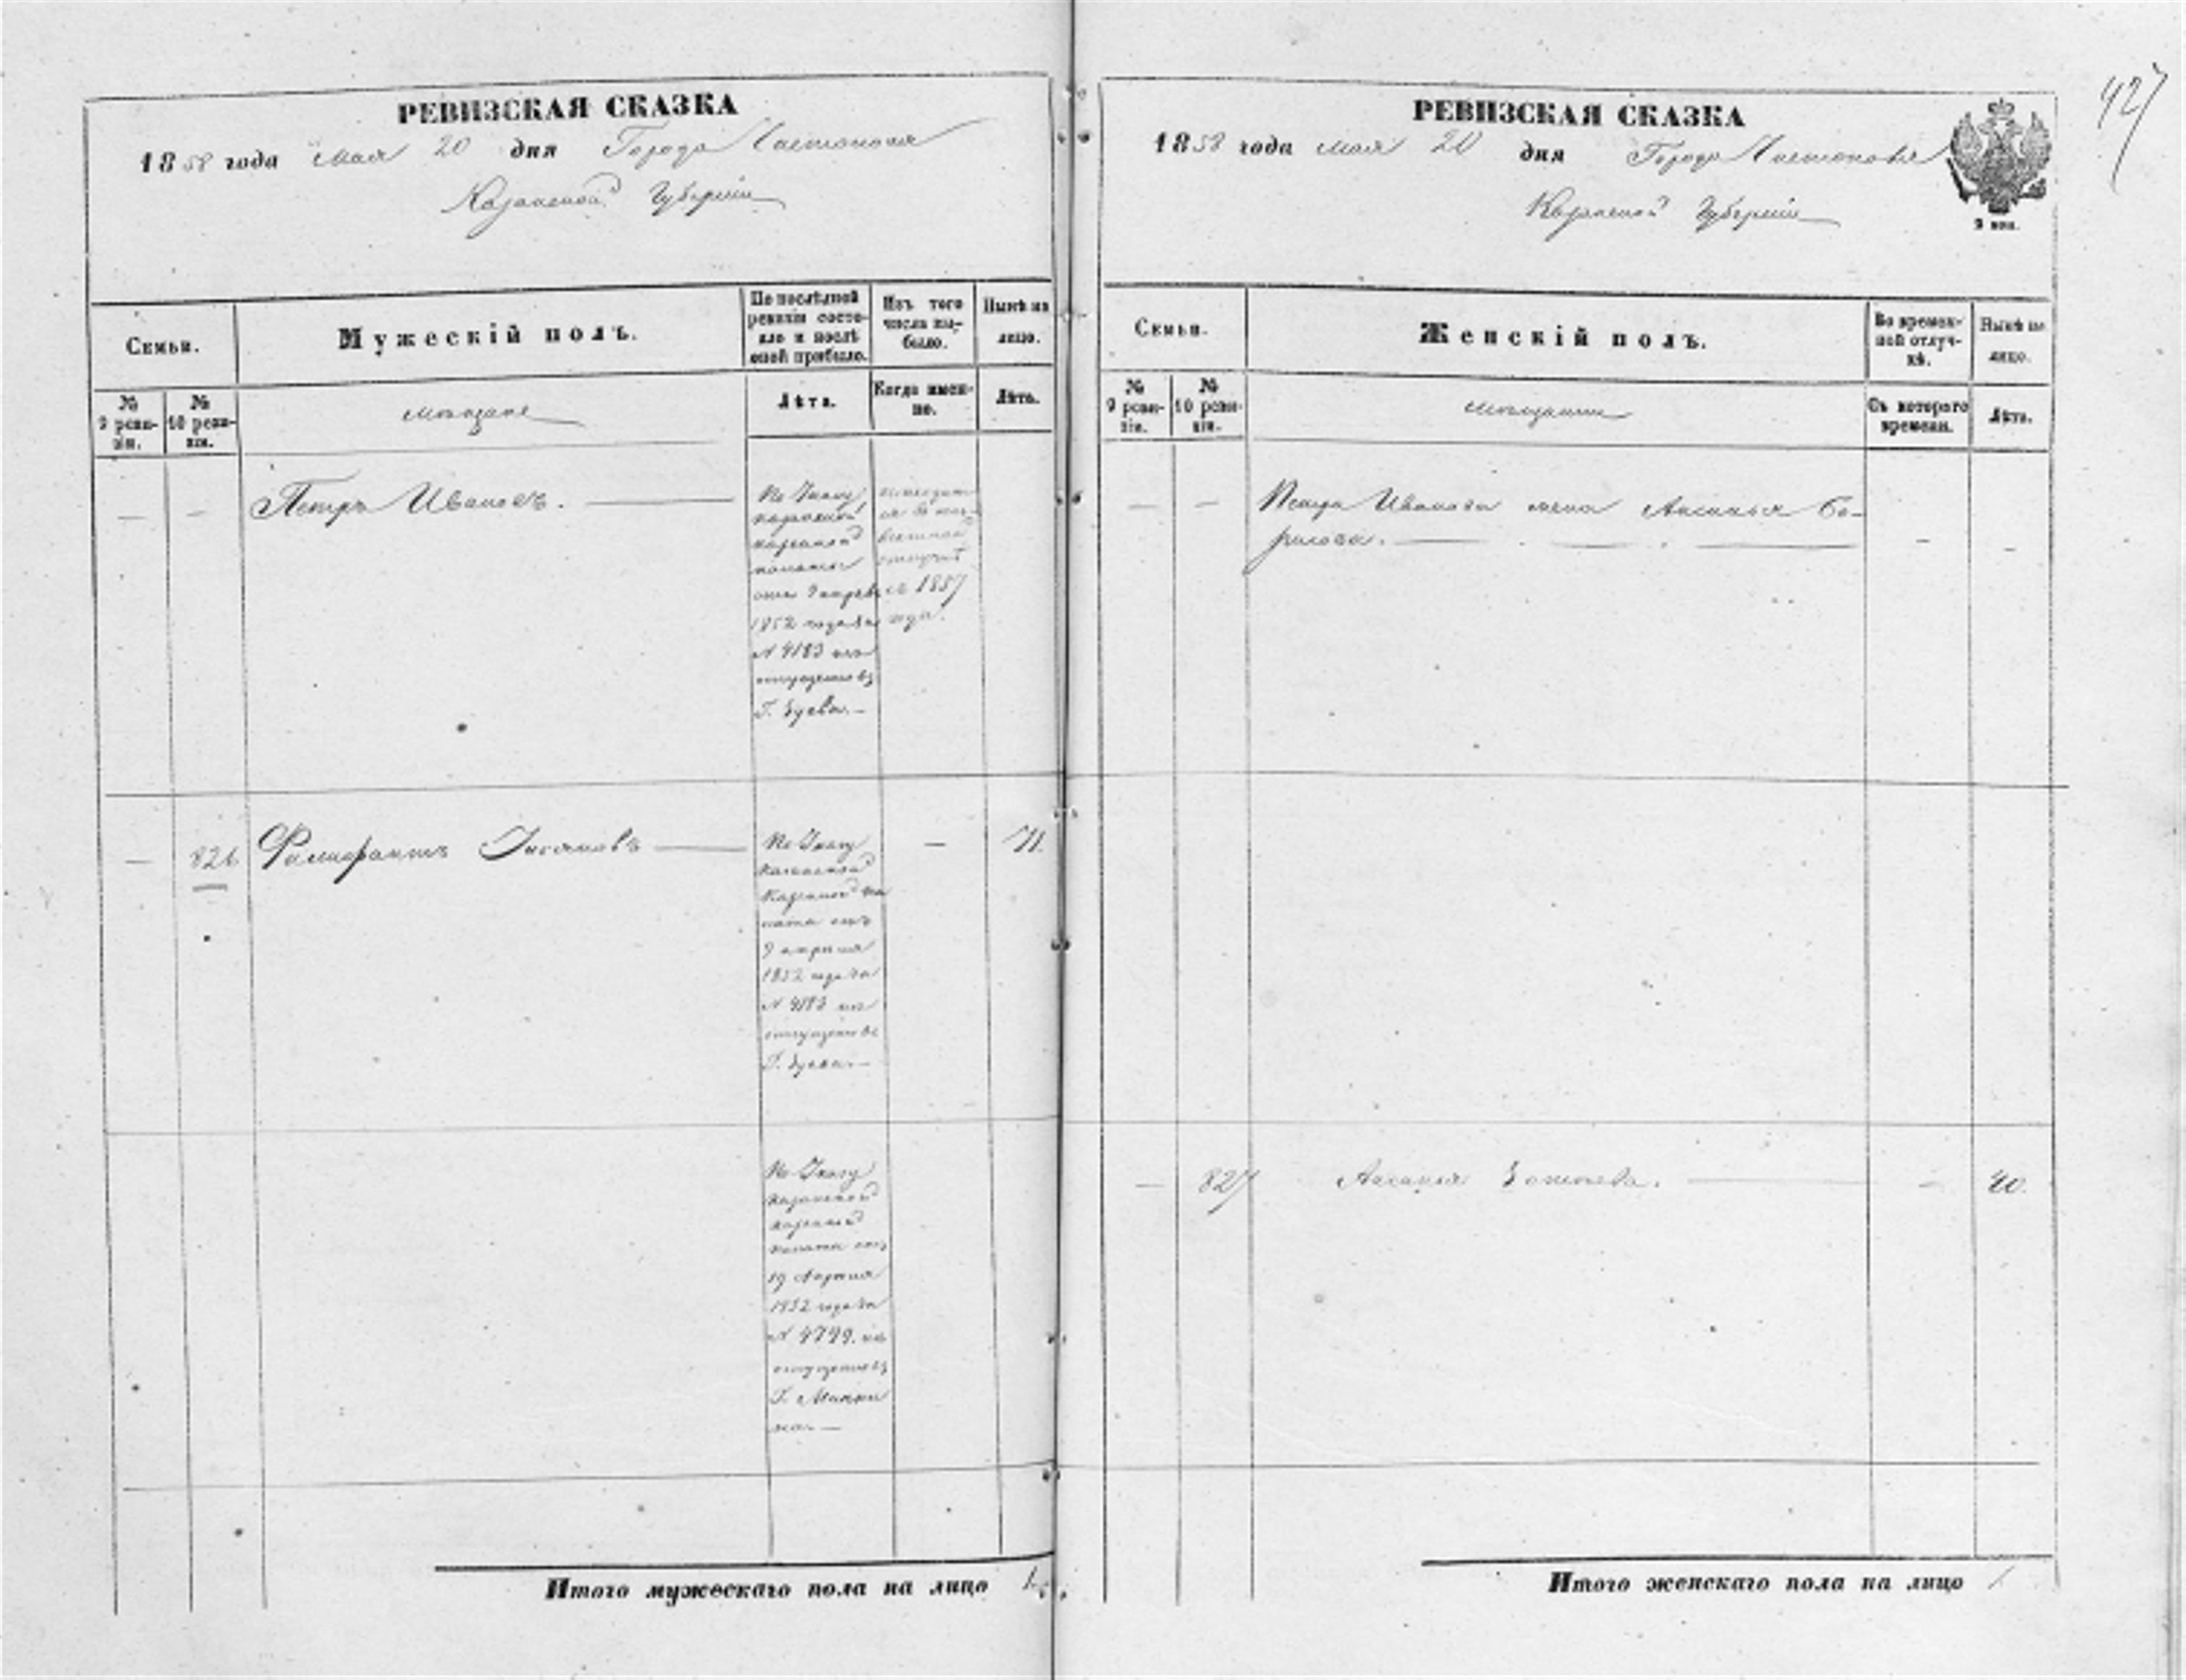 427
РЕВИЗСКАЯ СКАЗКА
1858 года мая 20 дня Города Чистополя
Казанской Губернiи
Семьи.
Мужескiй полъ.
По послѣдней
ревизiи состо-
яло и послѣ
оной прибыло.
Изъ того
числа вы-
было.
Нынѣ на
лицо.
№
9 реви-
зiи.
№
10 реви-
зiи.
мѣщане
Лѣта.
Когда имен-
но.
Лѣта.
— — Петръ Ивановъ.
По Указу
казанской
казенной
палаты
отъ 9 апрѣл
1852 года за
№ 4183 изъ
отпущенныхъ
Г.
находит
ся въ
отлучкѣ
съ 1857
года.
— 826
По Указу
Казанской
Казенной па
латы отъ
9 апрѣля
1852 года за
№ 4183 изъ
Г.
— 71.
По Указу
казанской
казенной
палаты отъ
19 Апрѣля
1852 года за
№ 4799. изъ
Г.
Итого мужескаго пола на лицо 1
РЕВИЗСКАЯ СКАЗКА
1858 года мая 20 дня Города Чистополя
Казанской Губернiи
Семьи.
Женскiй полъ.
Во времен-
ной отлуч-
кѣ.
Нынѣ на
лицо.
№
9 реви-
зiи.
№
10 реви-
зiи.
мѣщанки
Съ котораго
времени.
Лѣта.
— — Петра Иванова жена Аксинья
— 827 Аксинья — 40.
Итого женскаго пола на лицо 1